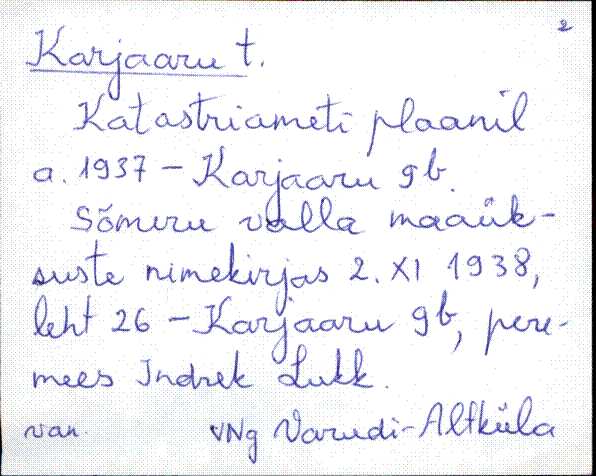 2
Karjaaru t.
Katastriameti plaanil
a. 1937 – Karjaaru 9b.
Sõmeru valla maaük-
suste nimekirjas 2. XI 1938,
leht 26 – Karjaaru 9b, pere-
mees Indrek Lukk.
van VNg Varudi-Altküla